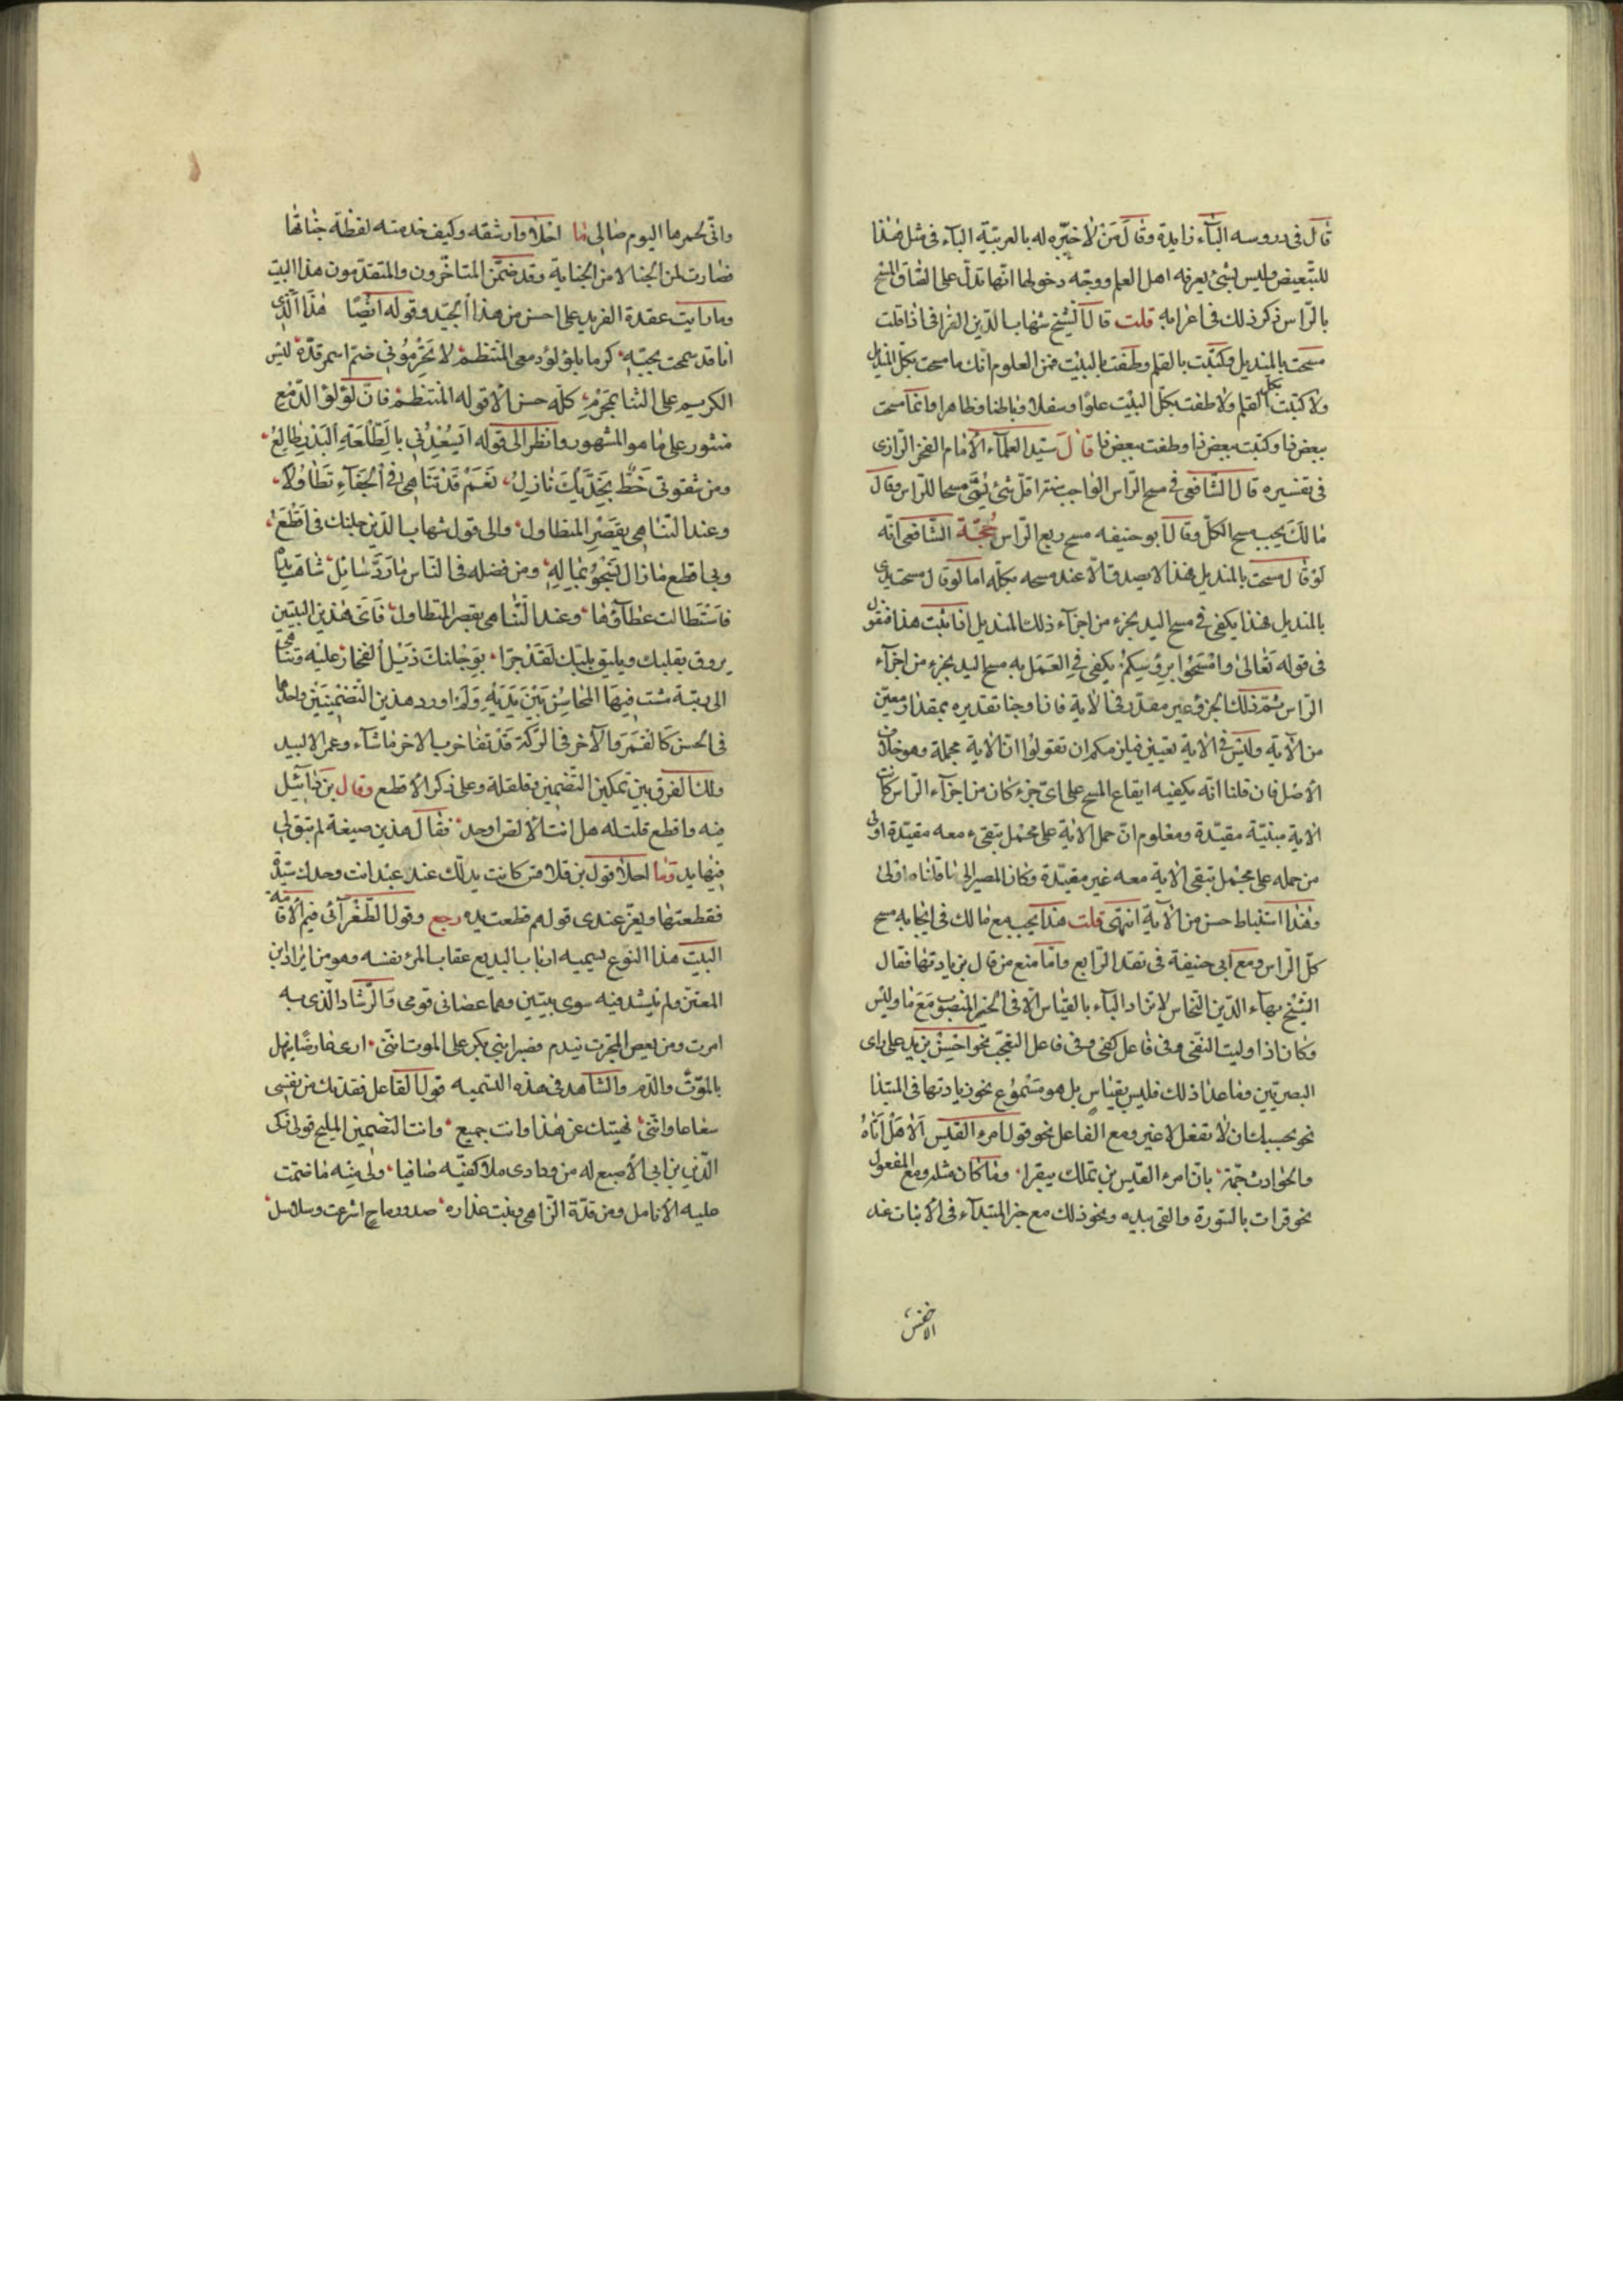 قال فى دروسه الباء زايدة وقال من لا خبره له بالعربية الباء فى مثل هذا
للتبعيض وليس بشئ يعرفه اهل العلم ووجه دخولها انها تدل على الصاق المسح
بالراس ذكر ذلك فى اعرابه قلت قال الشيخ شهاب الدين القرافى اذا قلت
مسحت بالمنديل وكتبت بالقلم وطفت بالبيت فمن المعلوم انك ما مسحت بكل المنديل
ولا كتبت بكل القلم ولا طفت بكل البيت علوا وسفلا وباطنا وظاهرا وانما مسحت
ببعض ذا وكتبت ببعض ذا وطفت ببعض ذا قال سيد العلماء الامام الفخر الرازى
فى تفسيره قال الشافعى فى مسح الراس الواجب اقل شئ يسمى مسحا للراس وقال
مالك يجب مسح الكل وقال ابو حنيفه مسح ربع الراس حجة الشافعى انه
لو قال مسحت بالمنديل فهذا لا يصدق الا عند مسحه بكله اما لو قال مسحت يدى
بالمنديل فهذا يكفى فى مسح اليد بجزء من اجزاء ذلك المنديل اذا ثبت هذا فنقول
فى قوله تعالى وامسحوا برؤسكم يكفى فى العمل به مسح اليد بجزء من اجزاء
الراس ثم ذلك الجزؤ غير مقدر فى الاية فان اوجبنا تقديره بمقدار معين
من الاية وليس فى الاية تعيين فيلزمكم ان تقولوا ان الاية مجملة وهو خلاف
الاصل فان قلنا انه يكفيه ايقاع المسح على اى جزء كان من اجزاء الراس كانت
الاية مبنيّة مقيّدة ومعلوم ان حمل الاية على محمل تبقى معه مقيّدة اولى
من حمله على محمل تبقى الاية معه غير مقيّدة وكان المصير الى ما قلناه اولى
وهذا استنباط حسن من الاية انتهى قلت هذا يجب مع مالك فى ايجابه مسح
كل الراس ومع ابى حنيفة فى تقد الرابع واما منع من قال بزيادتها فقال
الشيخ بهاء الدين النحاس لا تزاد الباء بالقياس الا فى الخبر المنصوب مع ما وليس
وكان اذا وليت النفى وفى فاعل كفى وفى فاعل التعجب نحو احسن بزيد على راى
البصريين وما عدا ذلك فليس بقياس بل هو مسموع نحو زيادتها فى المبتدا
نحو بحسبك ان لا تفعل لا غير ومع الفاعل نحو قول امرء القيس الا هل اتاه
والحوادث جمة بان امرء القيس بن تملك بيقرا وما كان مثله ومع المفعول
نحو قرات بالسورة والقى بيده ونحو ذلك مع خبر المبتداء فى الاثبات عند
الاخفش
وانى لجمرها اليوم صالى ما احلا وارشقه وكيف خدمته لفظة جناتها
فصارت من الجنا لا من الجناية وقد ضمن المتاخرون والمتقدمون هذا البيت
وما رايت عقدة الفريد على احسن من هذا الجيد وقوله ايضا هذا الذى
انا قد سمحت بحبه كرما بلؤلؤ دمعى المنتظم لا تحرمونى ضم اسمر قده ليس
الكريم على القنا بمحرم كله حسن الا قوله المنتظم فان لؤلؤ الدمع
منثور على ما هو المشهور وانظر الى قوله ايسعدنى يا طلعة البدر طالع
ومن شقوتى خط بخديك نازل نعم قد تناهى فى الجفاء تطاولا
وعند التناهى يقصر المتطاول والى قول شهاب الدين جلنك فى اقطع
وبى اقطع ما زال يسخو بماله ومن فضله فى الناس ما رد سائل
فاستطالت عطاؤها وعند التناهى يقصر المتطاول فان هذين البيتين
يروق بقلبك ويليق بلبك لقد جر ابو جلنك ذيل الفخار عليه وتناهى
الى رتبة مشت فيها المحاسن بين يديه ولم اورد هذين التضمينين واحدهما
فى الحسن كالقمر والاخر فى الركة قد تفاخر بالاخر ما شاء وعمر الا لبيد
ولك الفرق بين تمكين التضمين وقلقلة وعلى ذكر الاقطع وقال بن دانيال
فيه واقطع قلت له هل انت لا لص اوحد فقال هذين صيغة لم تبق لى
فيها يد وما احلا قول بن قلاقس كانت يد لك عند عبد انت وحدك سيده
فقطعتها ويعز عندى قولهم قطعت يده رجع وقول الطغرآئى فيم الاقامة
البيت هذا النوع يسميه ارباب البديع عقاب المرء نفسه وهو من ايراد بن
المعتز ولم ينشد فيه سوى بيتين وهما عصانى قومى والرشاد الذى به
امرت ومن يعص المجرب يندم فصبرا بنى بكر على الموت اننى ارى عارضا ينهل
بالموت والدم والشاهد فى هذه التسميه قول القاعل فقدتك من نفسى
شعاعا واننى نهيتك عن هذا وانت جميع وانت التضمين المليح قول زكى
الدين بن ابى الاصبع له من ودادى ملا كفيه صافيا ولى منه ما ضمت
عليه الانامل ومن قده الزاهى ونبت عذاره صدور رماح اشرعت وسلاسل